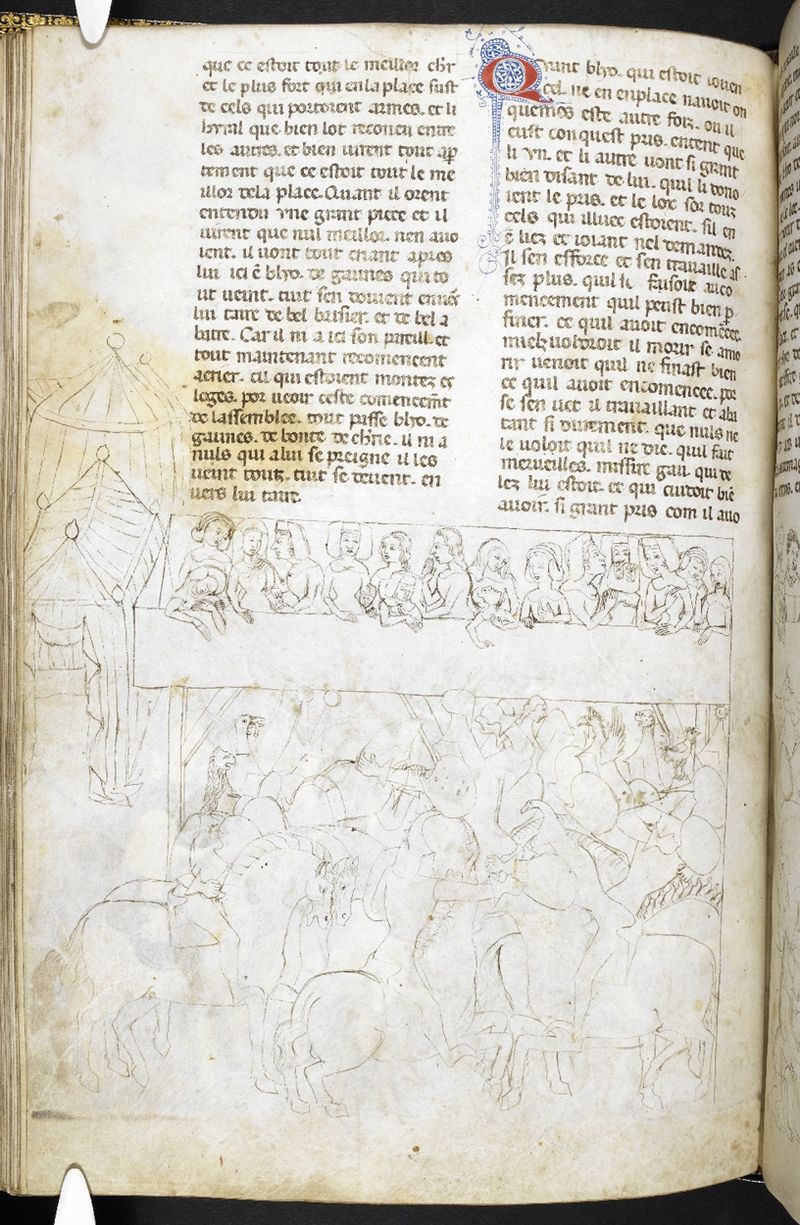 que ce estoit tout le meillor chr
et le plus fort qui en la place fust
de cels qui portoient armes. et li
hyrial que bien lot reconeu entre
les autres. et bien virent tout ap
tement que ce estoit tout le me
illor dela place. Quant il orent
entendu vne grant piece et il
virent que nul meillor. nen auo
ient. il vont tout criant apres
lui ici ē blyo. de gaunes qui to
ut ueint. tuit sen doiuent
lui taire de bel brisier. et de bel a
batre. Car il ni a ici son pareill. et
tout maintenant recomencent
acrier. cil qui estoient montez es
loges. por ueoir ceste comencemt
de lassemblee. tout passe blyo. de
gaunes. de bonte de chrie. il ni a
nuls qui a lui se preigne il les
ueint touz. tuit se deuent. en
uers lui taire.
Quant blyo. qui estoit
cel. ne en enplace nauoit on
quemes este autre foiz. ou il
eust conquest pris. entent que
li vn. et li autre uont si grant
bien disant de lui. quil li dono
ient le pris. et le lox sor touz
cels qui illuec estoient. sil en
ē liez et ioiant nel demandez.
Il sen esforce et sen trauaille as
sez plus. quil ne faisoit auco
mencement quil peust bien p
finer. ce quil auoit encomēcee.
mielz uoldroit il morir se
nir uenoit quil ne finast bien
ce quil auoit encomencee. por
se sen uet il trauaillant et aba
tant si durement. que nuls ne
le uoloit quil ne die. quil fait
merueilles. missire gau. qui de
lez lui estoit. et qui cuidoit biē
auoir. si grant pris com il auo